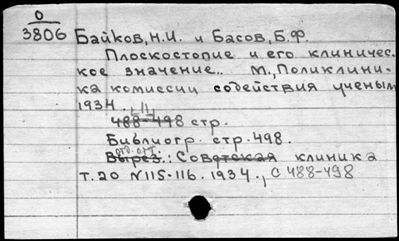 0
3806 Байков, Н.И. и Басов, Б.Ф.
Плоскостопие и его клиничес-
кое значение.. М., Поликлини-
ка комиссии содействия ученым
1934.
11
488-498 стр.
Библиогр. стр. 498.
отд. отт.
Вырез.: Советская клиника
т. 20 N115-116. 1934., С 488-498